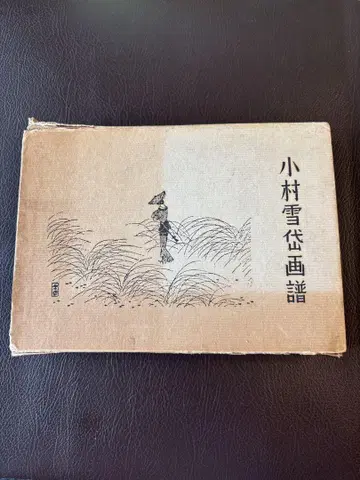 小村雪岱画譜